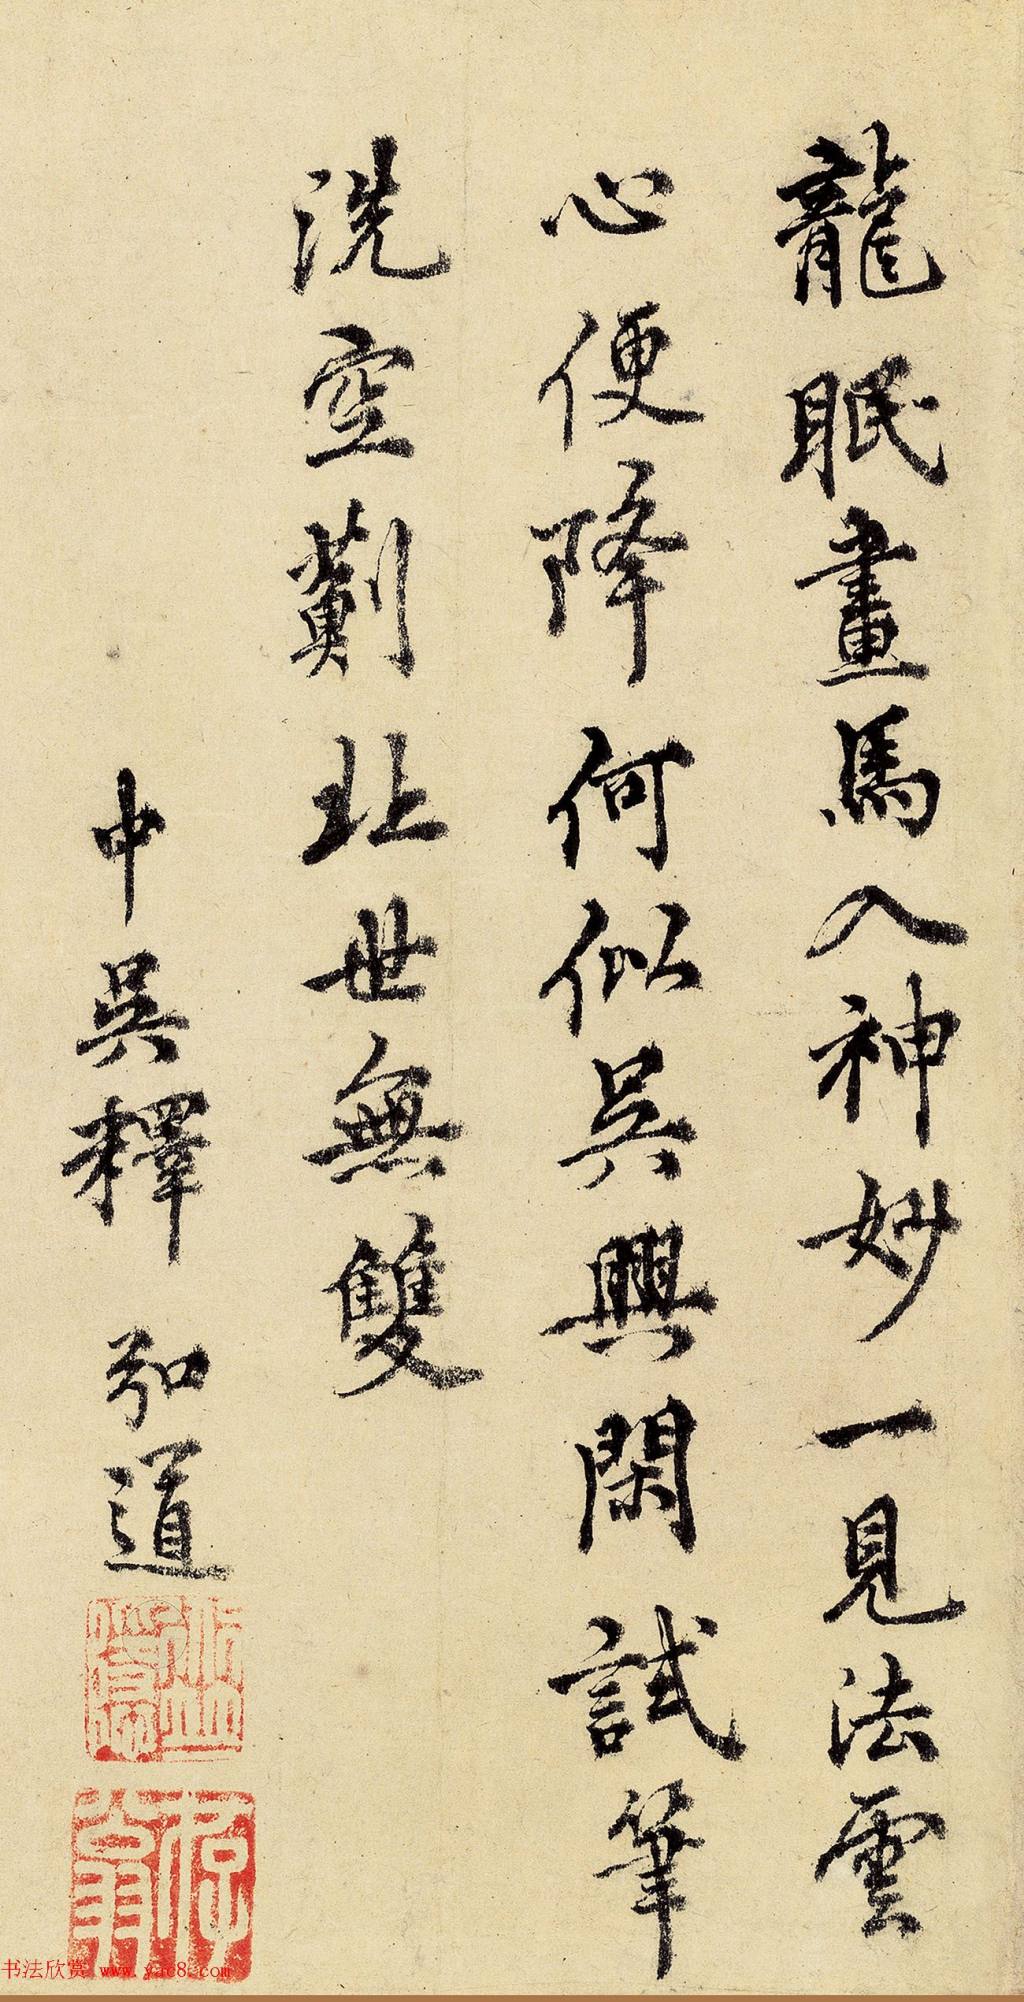 龍眠畫馬入神妙一見法雲
心便降何似吳興閑試筆
洗空薊北世無雙
中吳釋 弘道
书法欣赏 www.yac8.com